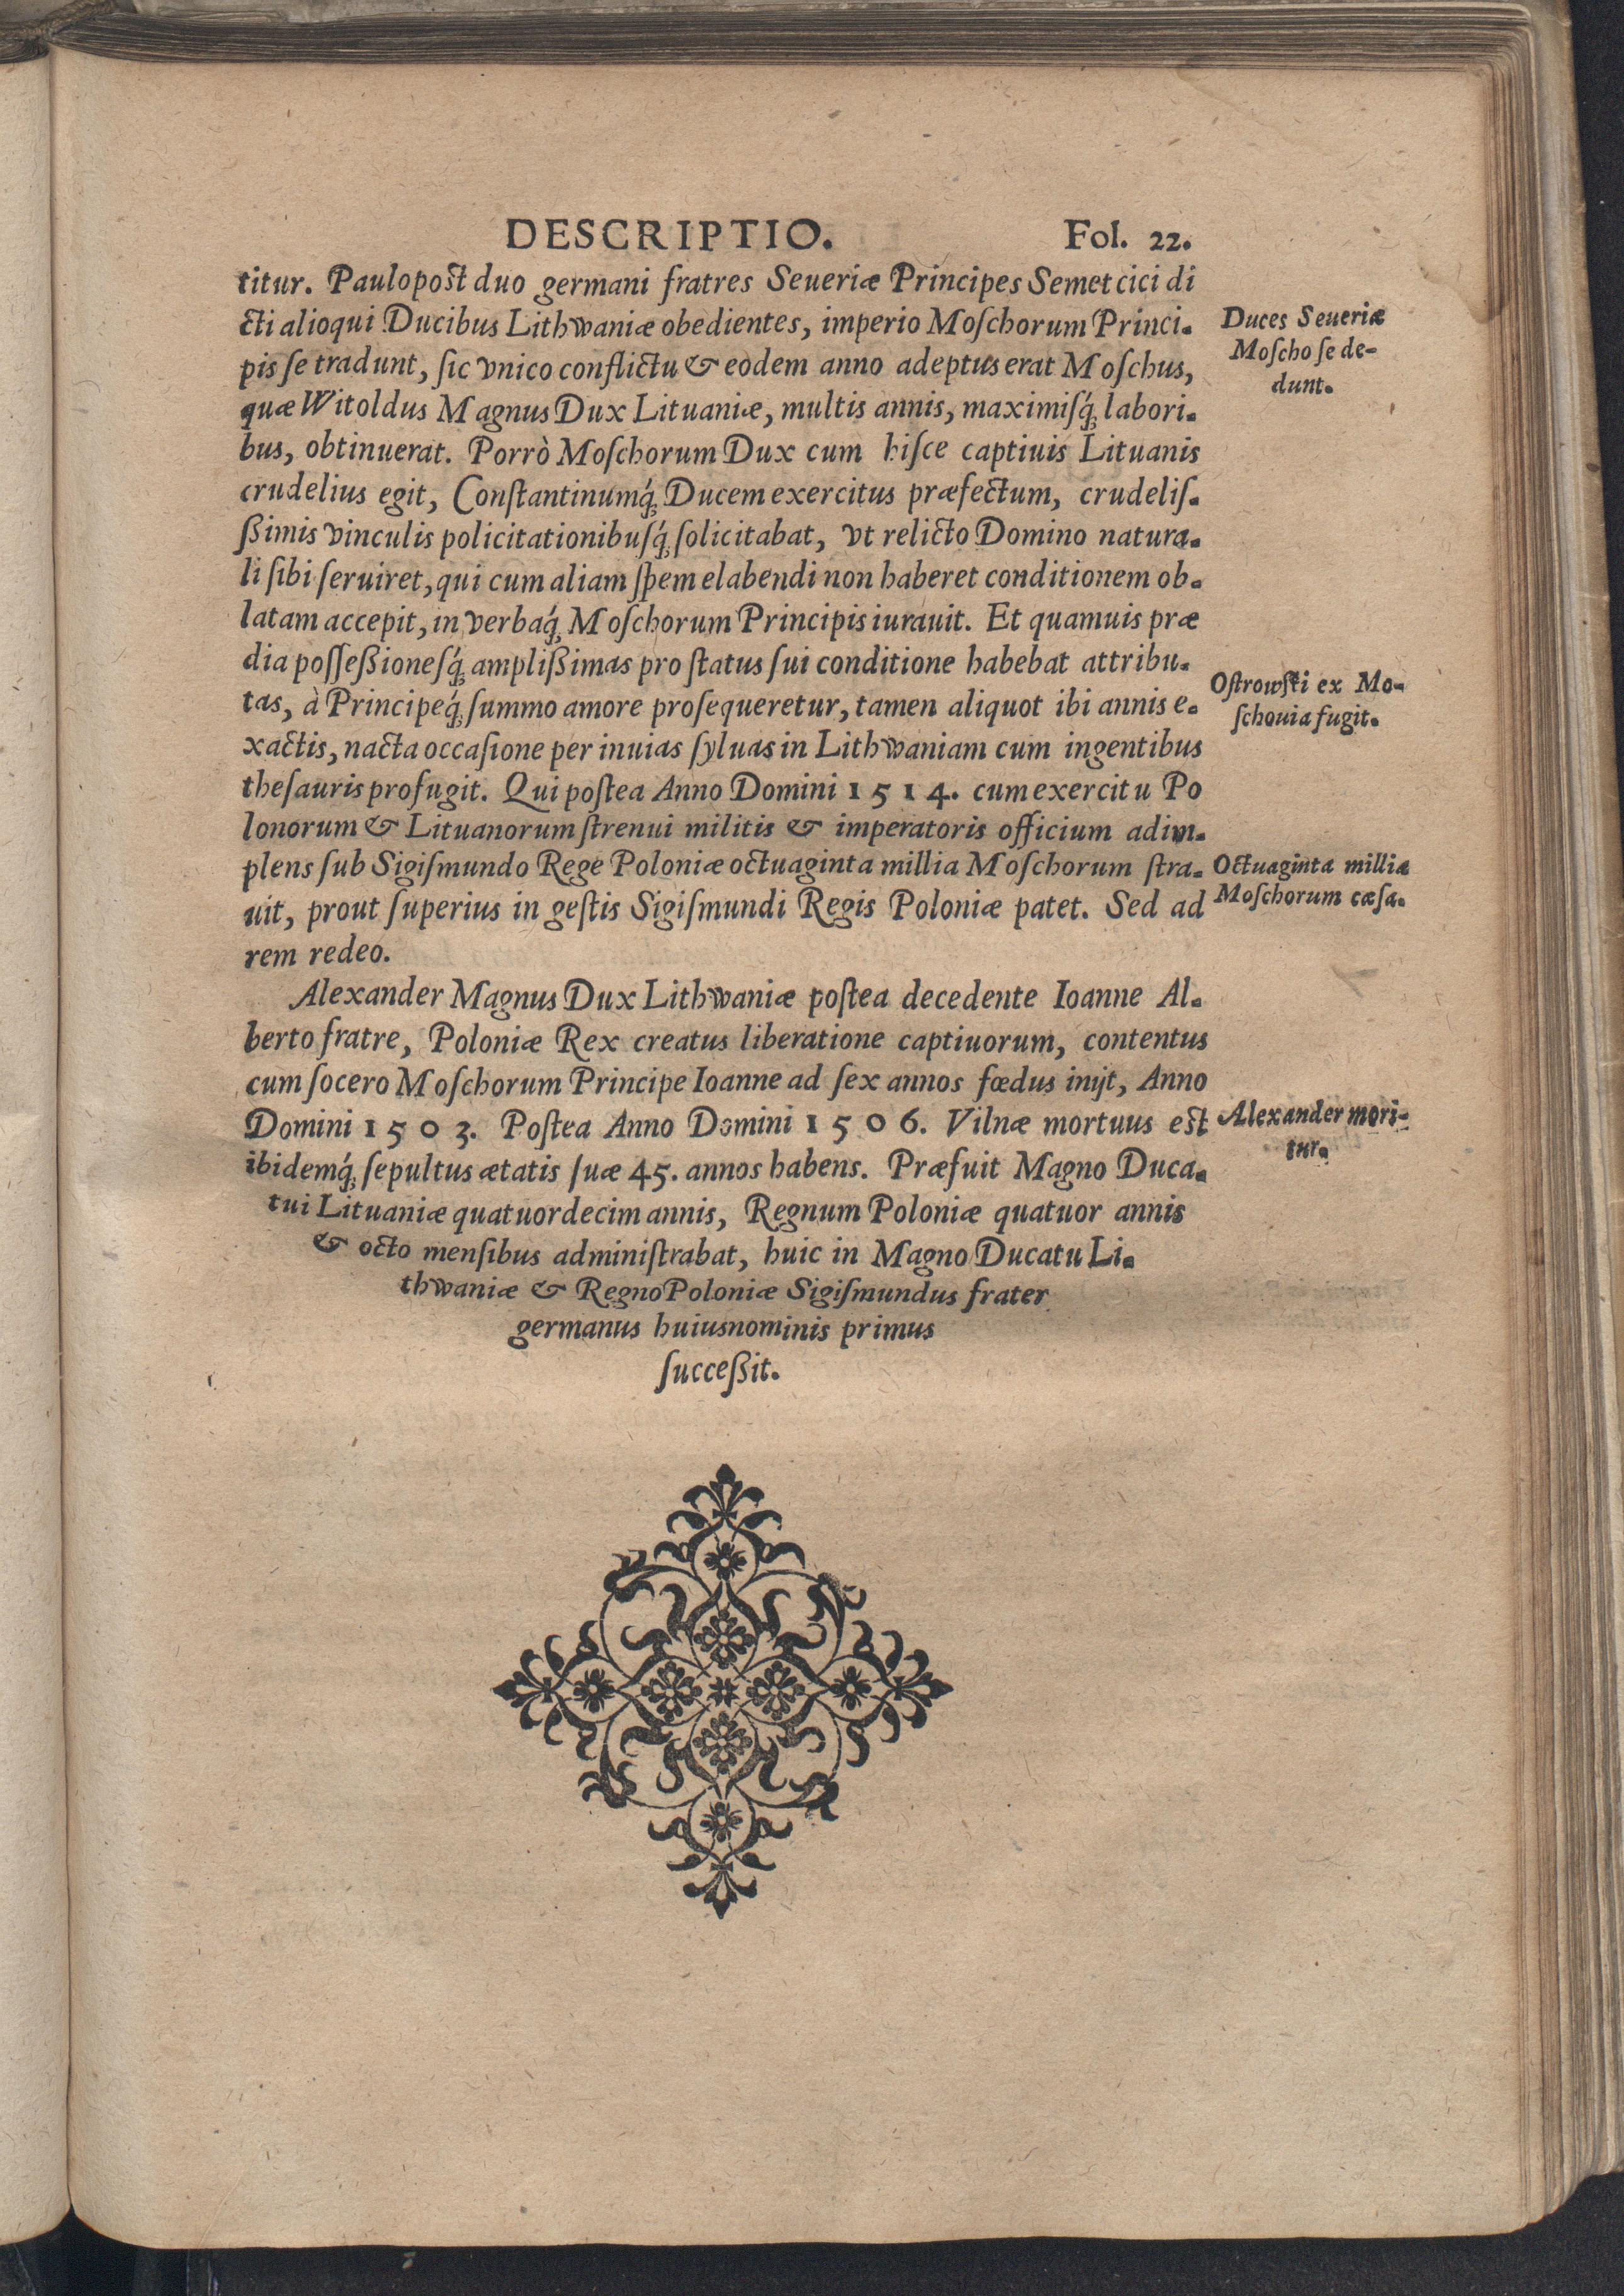 DESCRIPTIO. Fol. 22.
titur. Paulopost duo germani fratres Seueriæ Principes Semetcici di
cti alioqui Ducibus Lithwaniæ obedientes, imperio Moſchorum Princi-
pis ſe tradunt, ſic vnico conflictu & eodem anno adeptus erat Moſchus,
quæ Witoldus Magnus Dux Lituaniæ, multis annis, maximiſq́; labori-
bus, obtinuerat. Porrò Moſchorum Dux cum hiſce captiuis Lituanis
crudelius egit, Conſtantinumq́; Ducem exercitus præfectum, crudeliſ-
ßimis vinculis policitationibuſq́; ſolicitabat, vt relicto Domino natura-
li ſibi ſeruiret, qui cum aliam ſpem elabendi non haberet conditionem ob-
latam accepit, in verbaq́; Moſchorum Principis iurauit. Et quamuis præ
dia poſſeßioneſq́; amplißimas pro ſtatus ſui conditione habebat attribu-
tas, à Principeq́; ſummo amore proſequeretur, tamen aliquot ibi annis e-
xactis, nacta occaſione per inuias ſyluas in Lithwaniam cum ingentibus
theſauris profugit. Qui poſtea Anno Domini 1514. cum exercitu Po
lonorum & Lituanorum ſtrenui militis & imperatoris officium adim-
plens ſub Sigiſmundo Rege Poloniæ octuaginta millia Moſchorum ſtra-
uit, prout ſuperius in geſtis Sigiſmundi Regis Poloniæ patet. Sed ad
rem redeo.
Alexander Magnus Dux Lithwaniæ poſtea decedente Ioanne Al-
berto fratre, Poloniæ Rex creatus liberatione captiuorum, contentus
cum ſocero Moſchorum Principe Ioanne ad ſex annos fœdus inijt, Anno
Domini 1503. Poſtea Anno Domini 1506. Vilnæ mortuus eſt
ibidemq́; ſepultus ætatis ſuæ 45. annos habens. Præfuit Magno Duca-
tui Lituaniæ quatuordecim annis, Regnum Poloniæ quatuor annis
& octo menſibus adminiſtrabat, huic in Magno Ducatu Li-
thwaniæ & Regno Poloniæ Sigiſmundus frater
germanus huius nominis primus
ſucceßit.
Duces Seueriæ
Moſcho ſe de-
dunt.
Oſtrowſki ex Mo-
ſchouia fugit.
Octuaginta millia
Moſchorum cæſa.
Alexander mori-
tur.